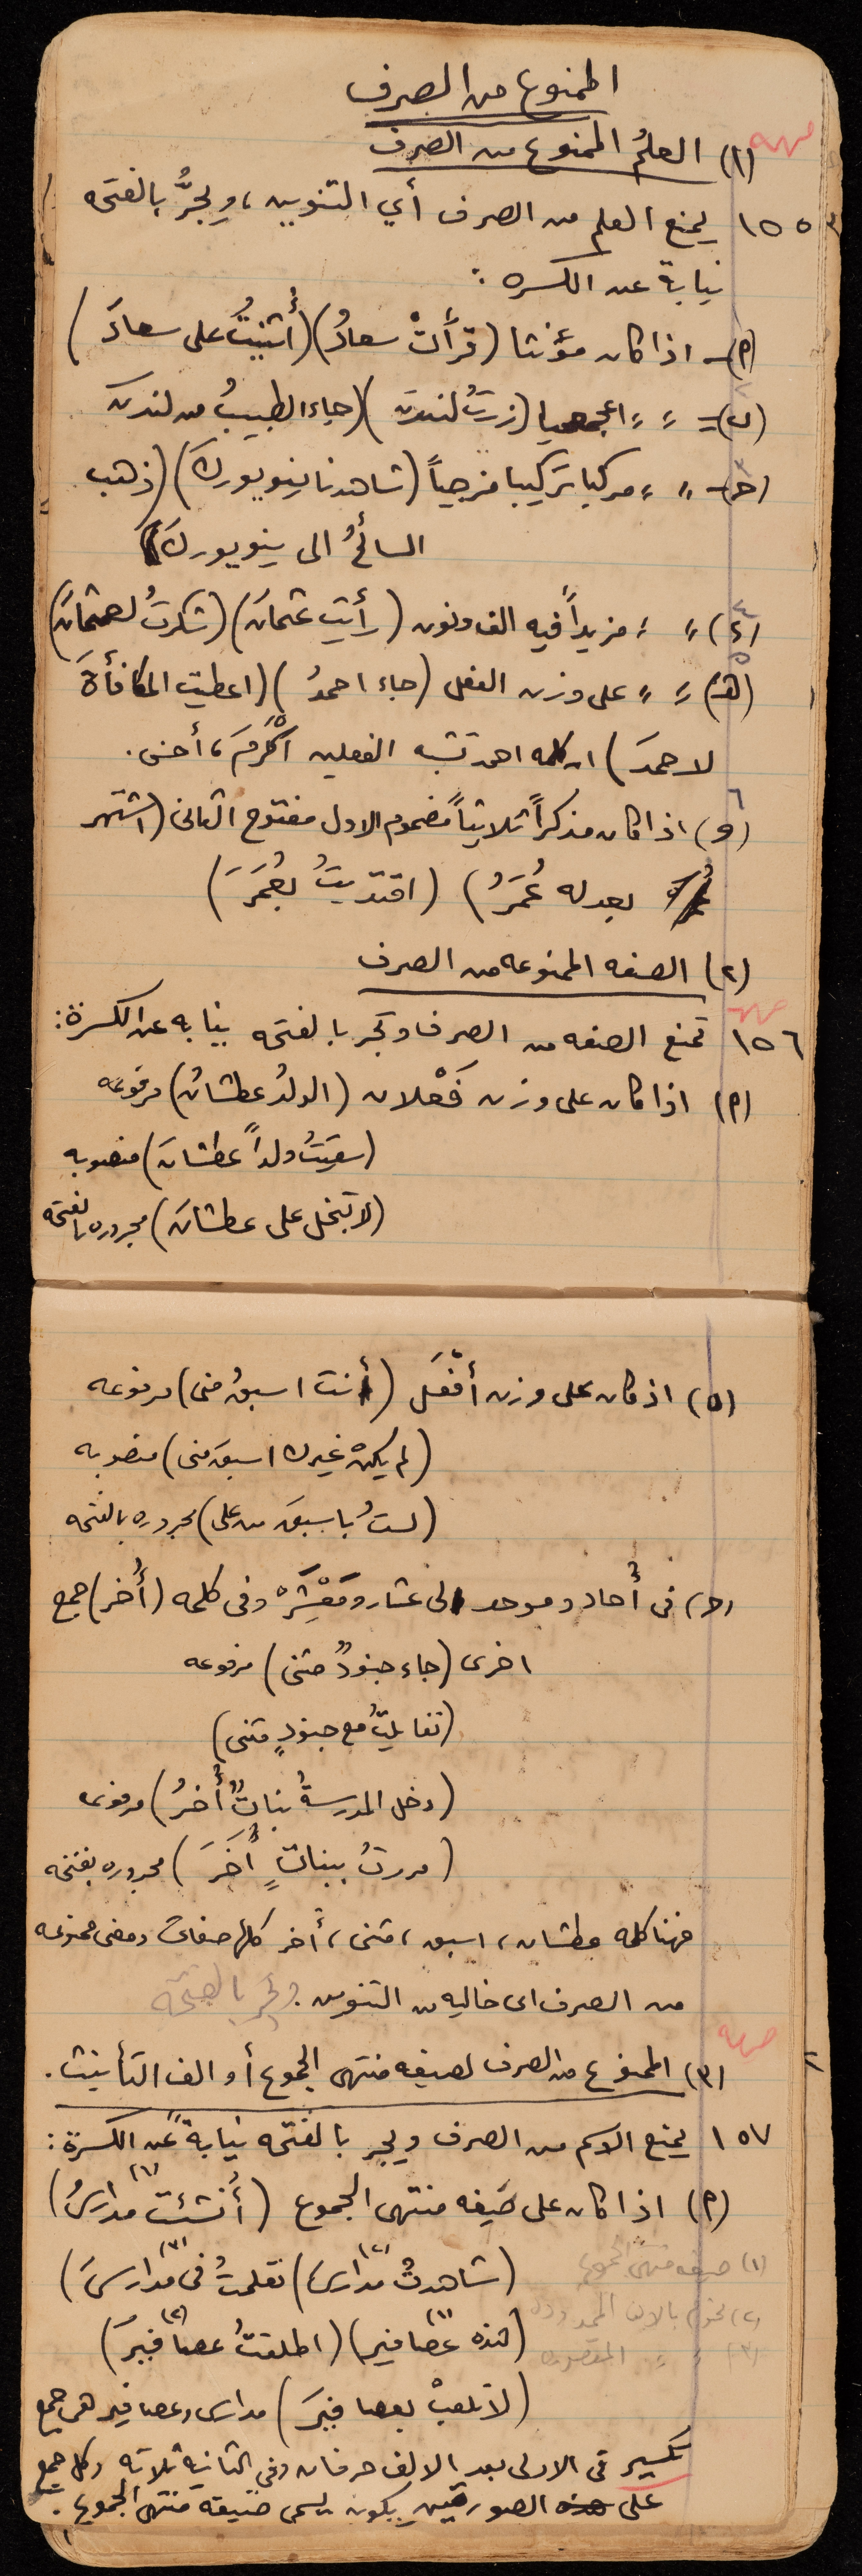 الممنوع من الصرف
(١) العلمُ الممنوع من الصرف
١٥٥ يمنع العلم من الصرف أي التنوين، ويجرُّ بالفتحه
نيابة عن الكسره :
(أ) - اذا كان مؤنثا (قرأتْ سعادُ) (أُثنيتُ على سعادَ)
(ب) = " " اعجميا (زرتُ لندنَ) (جاء الطبيبُ من لندنَ
(ج) - " " مركبا تركيبا مزجياً (شاهدنا نيويوركَ) (ذهب
السائحُ الى نيويوركَ)
(د) " " مزيداً فيه الف ونون (رأيت عثمانَ) (شكرتُ لعثمانَ)
(هـ) " " على وزن الفعل (جاء احمدُ) (اعطيت المكافأةَ
لاحمدَ) ان كلمه احمد تشبه الفعلين أكْرمَ، أحسن.
(و) اذا كان مذكراً ثلاثياً مضموم الاول مفتوح الثاني (اشتهر
بعدله عُمَرُ) (اقتديتُ بعُمَرَ)
(٢) الصفه الممنوعه من الصرف
١٥٦ تمنع الصفه من الصرف وتجر بالفتحه نيابه عن الكسرة:
(أ) اذا كان على وزن فَعْلان (الولدُ عطشانُ) مرفوعه
(سقيتُ ولداً عطشانَ) منصوبه
(لا تبخل على عطشانَ) مجروره بالفتحه
(ب) اذ كان على وزن أفْعَل (أنت اسبقُ مني) مرفوعه
(لم يكنْ غيرك اسبقَ مني) منصوبه
(لستُ باسبقَ من علي) مجروره بالفتحه
(ج) في أُحاد وموحد الى عشار ومَعْشَرْ وفي كلمه (أُخر) جمع
اخرى (جاء جنودٌ مثنى) مرفوعه
(تقابلتُ مع جنودٍ مثنى)
(دخل المدرسةُ بناتٌ أُخرُ) مرفوعه
(مررتُ ببناتٍ أُخَرَ) مجروره بفتحه
فهنا كلمه عطشان، اسبق، مثنى، أُخر كلها صفات وهي ممنوعه
من الصرف اى خاليه من التنوين. وتجر بالفتحة
(٣) الممنوع من الصرف لصيغه منتهى الجموع أو الف التأنيث.
١٥٧ يمنع الاسم من الصرف ويجر بالفتحه نيابةً عن الكسرة:
(أ) اذا كان على صيغه منتهى الجموع (أُنشئت مدارسُ) (١)
(شاهدتُ مدارسَ) (٢) تعلمتُ في مدارسَ) (٣)
(١) صيغه منتهى الجموع
(هذه عصافير) (١) (اطلقتُ عصافيرَ) (٢)
(٢) مختوم بالالف الممدوده
(٣) " " المقصوره
(لا تلعبْ بعصافيرَ) مدارس وعصافير هي جمع
تكسير في الاولى بعد الالف حرفان وفي الثانية ثلاثه وكل جمع
على الصورتين يكون يسمى صيغه منتهى الجموع.